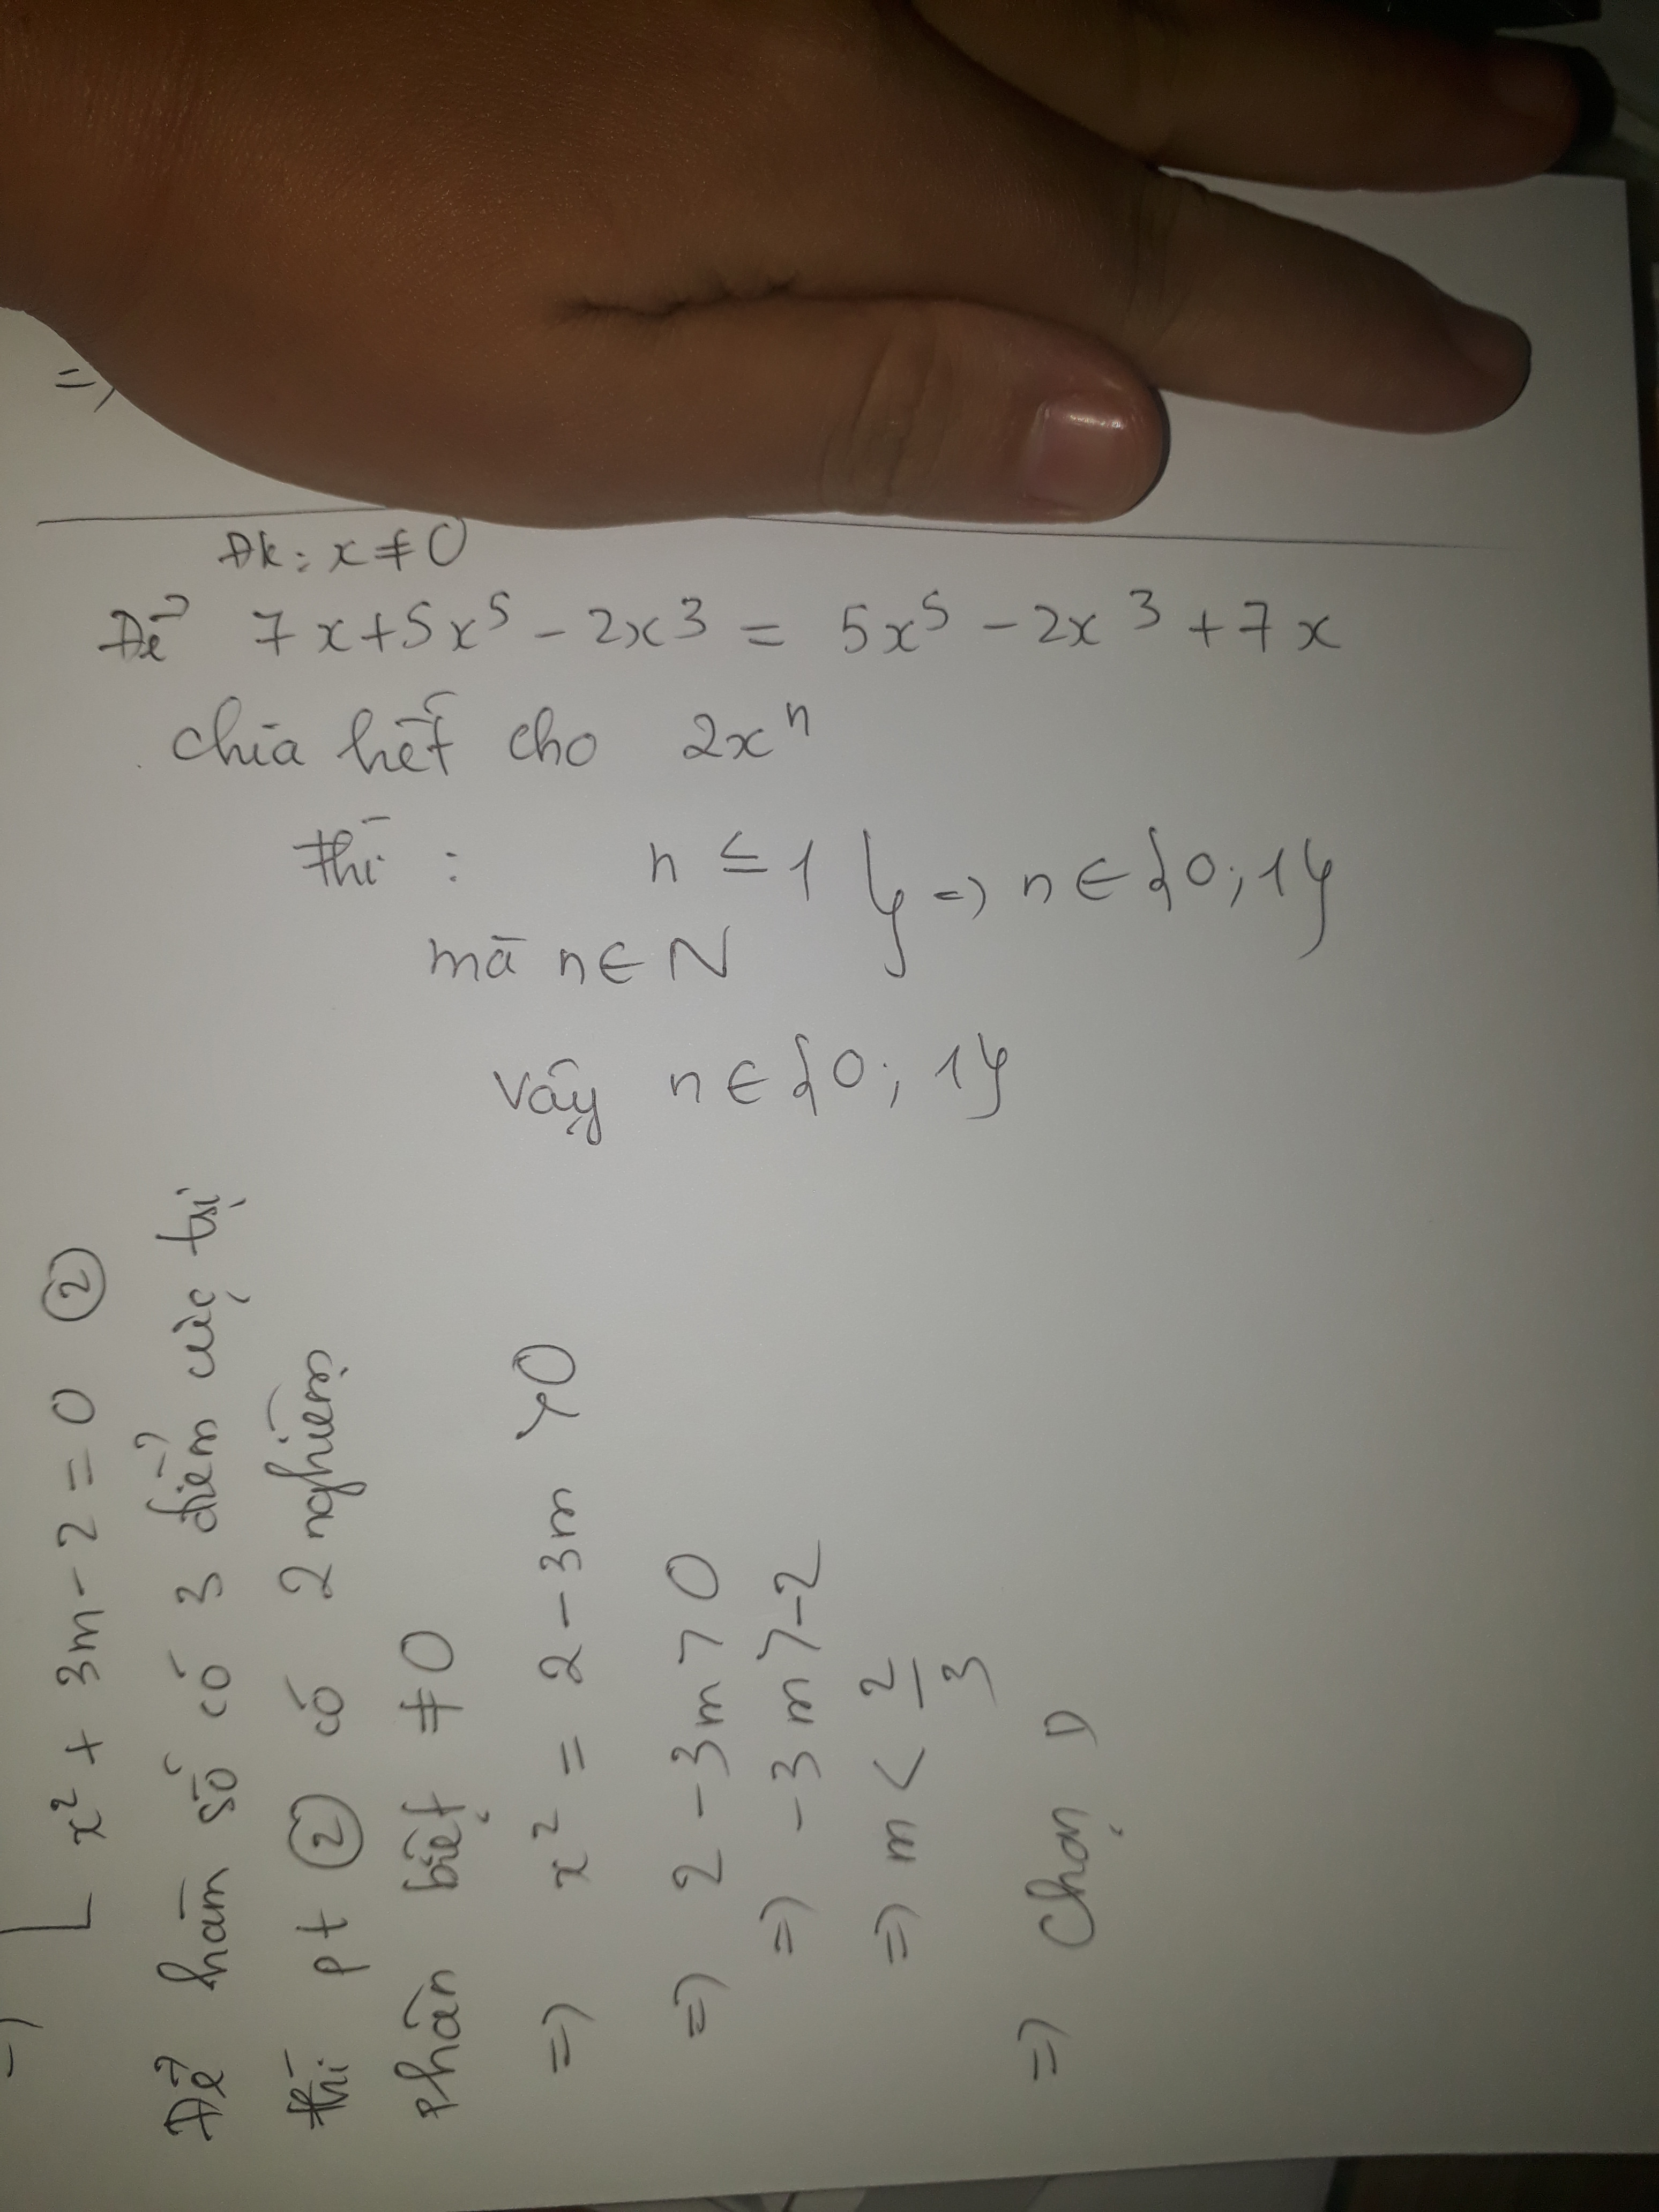 =>
Đk: x ≠ 0
Để 7x + 5x⁵ - 2x³ = 5x⁵ - 2x³ + 7x
chia hết cho 2xⁿ
thì : n ≤ 1 } => n ∈ {0; 1}
mà n ∈ N
Vậy n ∈ {0; 1}
=> [ x² + 3m - 2 = 0 ②
Để hàm số có 3 điểm cực trị
thì pt ② có 2 nghiệm
phân biệt ≠ 0
=> x² = 2 - 3m > 0
=> 2 - 3m > 0
=> - 3m > -2
=> m < 2/3
=> Chọn D